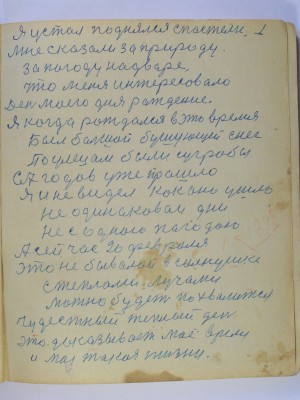 Я устал поднялся спостели. 1
Мне сказали за природу.
За погоду на дваре,
что меня интересовало
Ден моего дня рождение.
Я когда рождался в это время
Был балшой бушующий снег
По улецам были сугробы
годов уже прошло
Я и не видел как ано ушло
Не одинаковаи дни
Не с одного пагодаю
А сейчас 20 февраля
Это не бывалой в солнушке
степлами лучами
Можно будет похвалится
Чудестный теплый ден
Это доказывает маё время
и мая такая жизни.